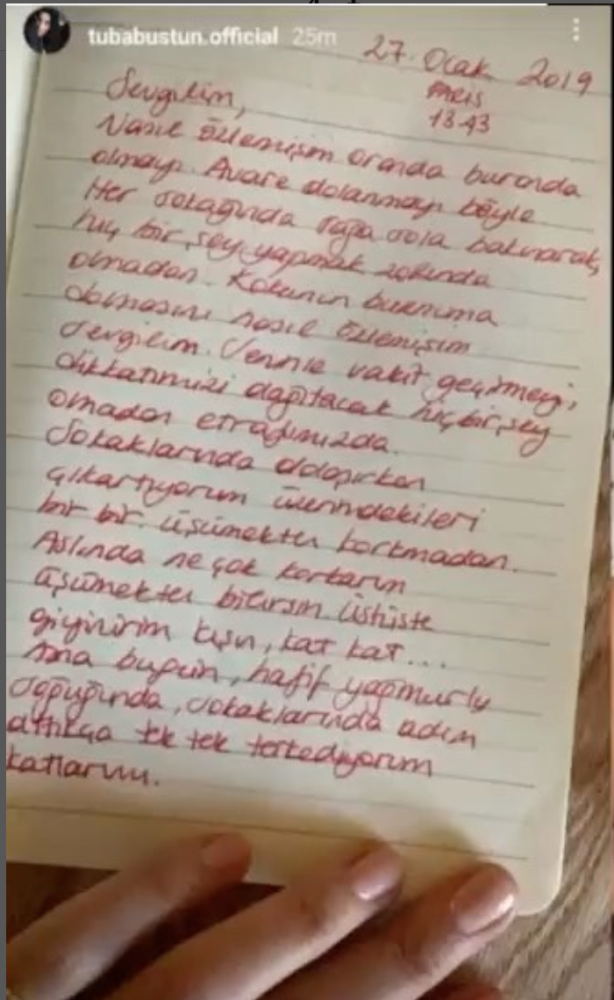 tubabustun.official 25m
27. Ocak 2019
PARIS
13.43
Sevgilim,
Nasıl özlemişim oranda buranda
olmayı. Avare dolanmayı böyle
Her sokağında sağa sola bakınarak,
hiç bir şey yapmak zorunda
olmadan. Kokunun burnuma
dolmasını nasıl özlemişim
sevgilim. Senle vakit geçirmeyi,
dikkatimizi dağıtacak hiçbir şey
olmadan etrafımızda.
Sokaklarında dolaşırken
çıkartıyorum üzerimdekileri
bir bir. üşümekten korkmadan.
Aslında ne çok korkarım
üşümekten bilirsin. üstüste
giyinirim kışın, kat kat...
Ama bugün, hafif yağmurlu
soğuğunda, sokaklarında adım
attıkça tek tek terkediyorum
katlarımı.